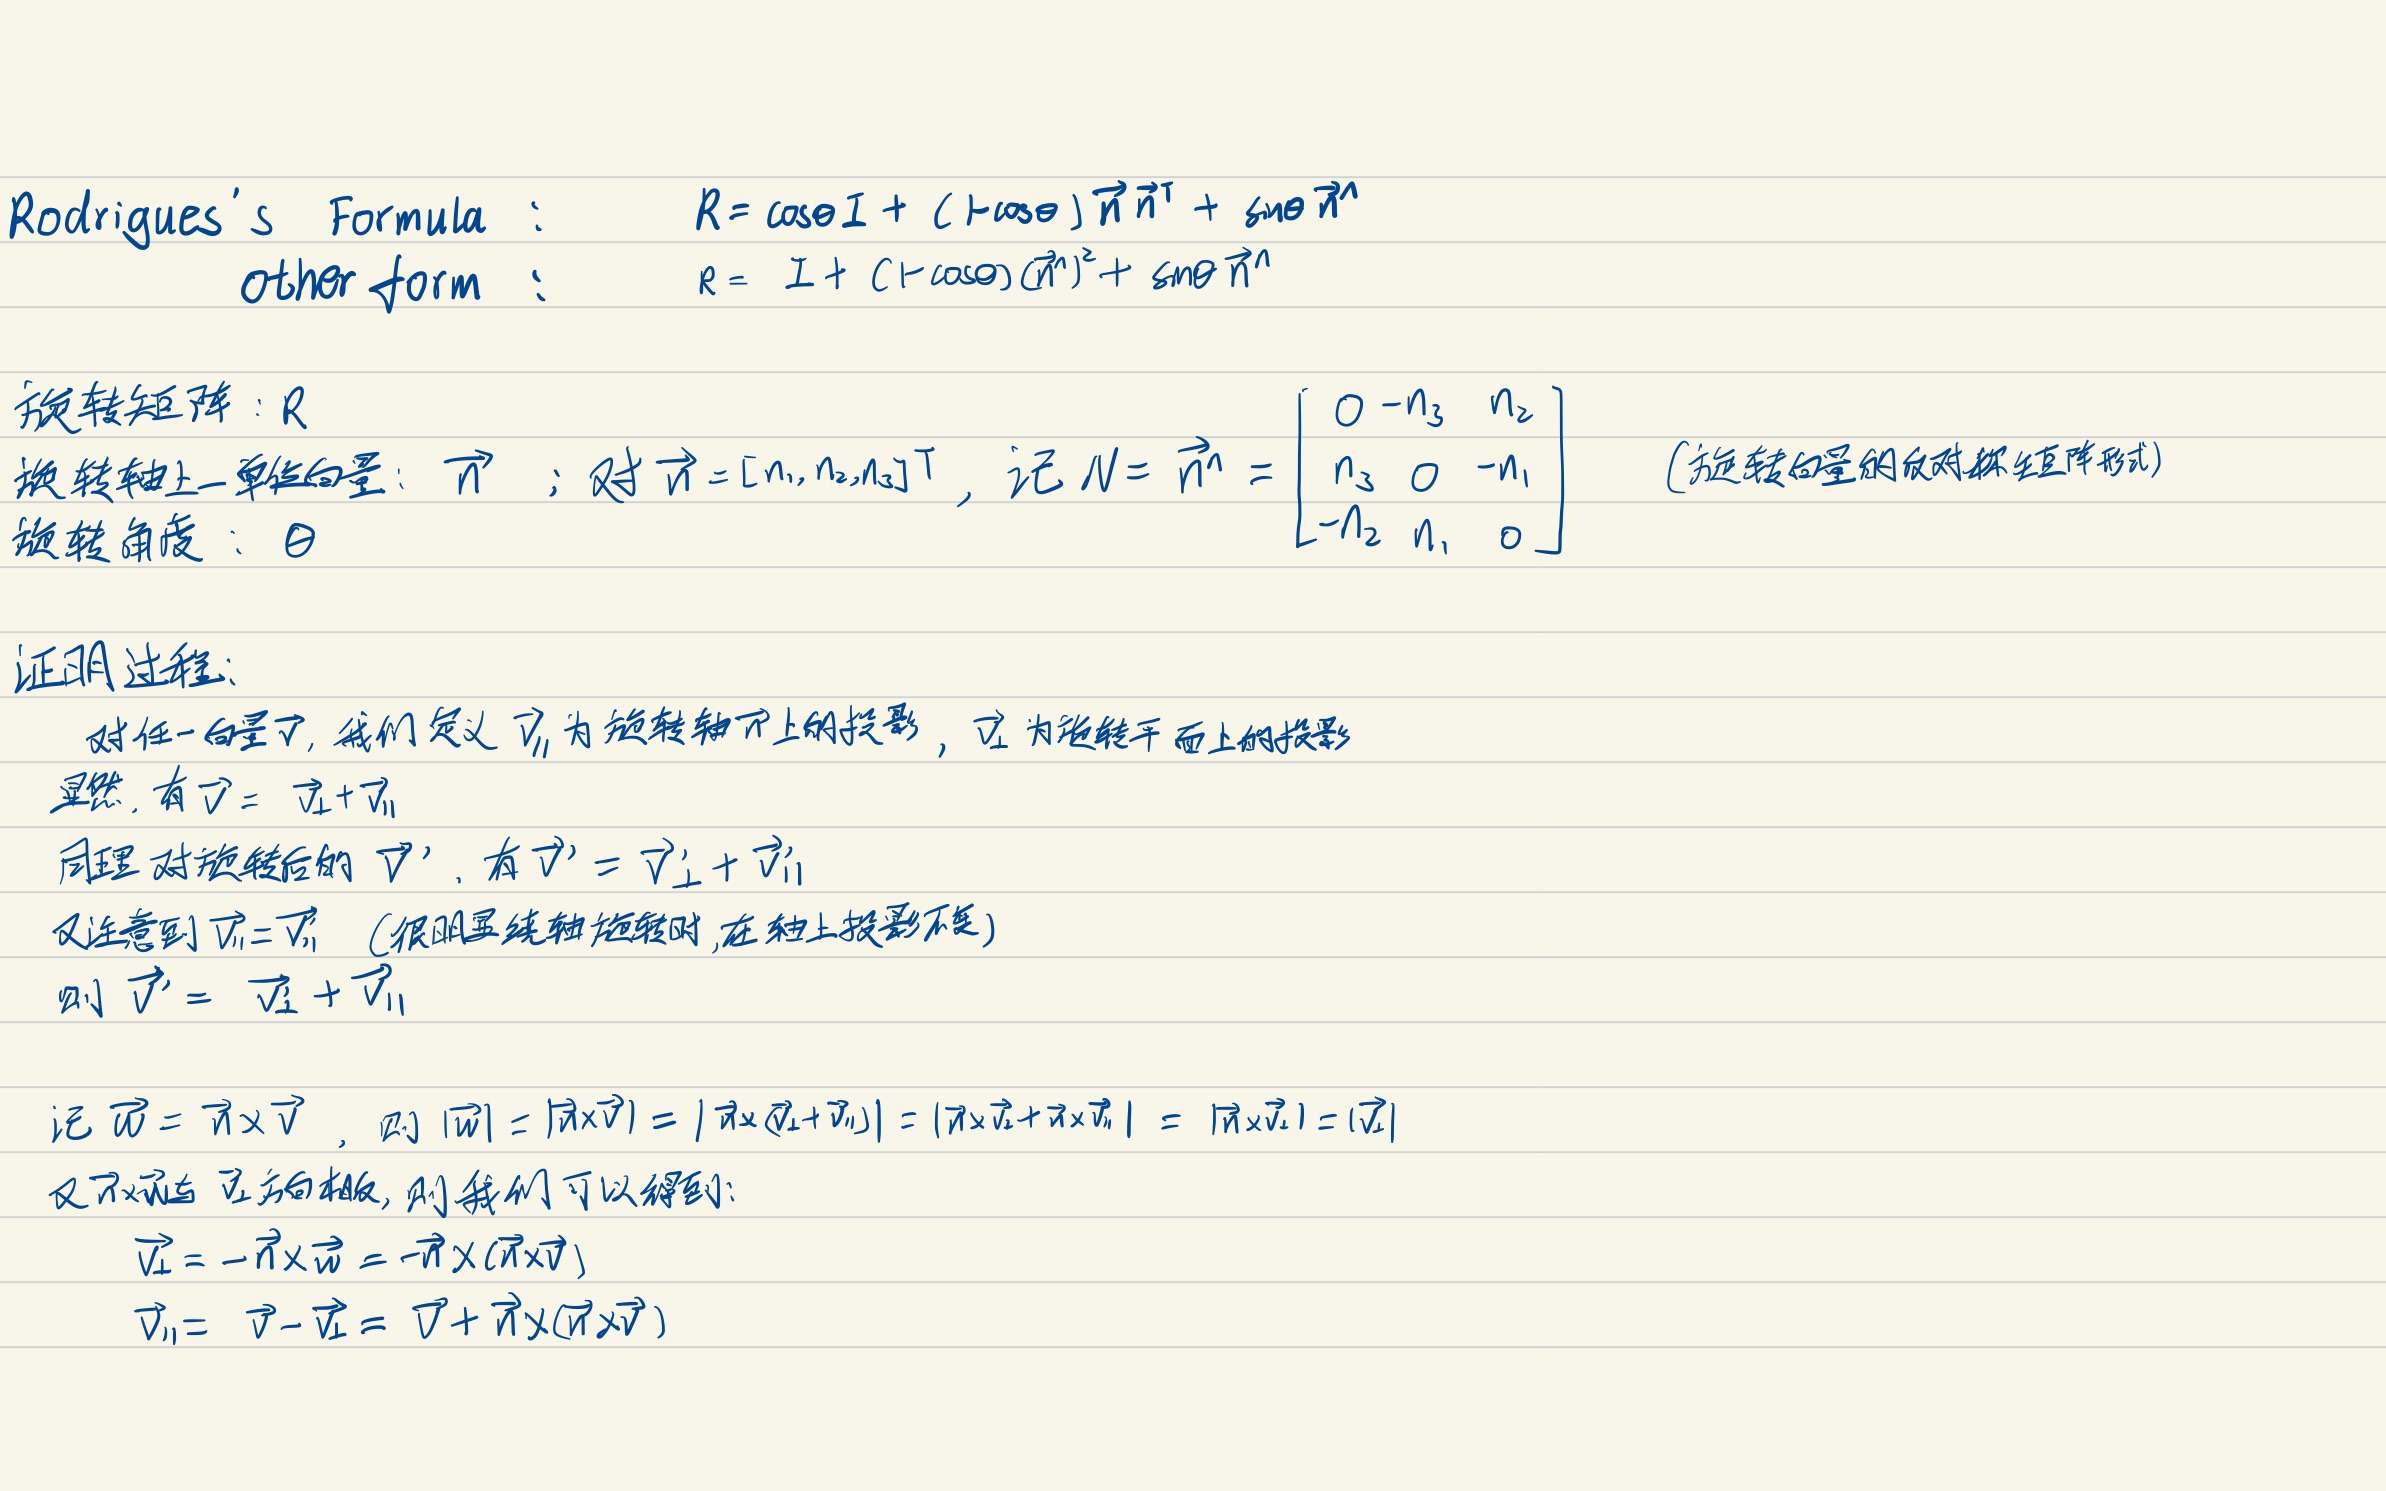 Rodrigues's Formula : R = cosθ I + (1-cosθ) n⃗ n⃗ᵀ + sinθ n⃗^
other form : R = I + (1-cosθ)(n⃗^)² + sinθ n⃗^
旋转矩阵 : R
旋转轴上一单位向量 : n⃗ ; 对 n⃗ = [n₁, n₂, n₃]ᵀ , 记 N = n⃗^ = [0 -n₃ n₂; n₃ 0 -n₁; -n₂ n₁ 0] (旋转向量的反对称矩阵形式)
旋转角度 : θ
证明过程:
对任一向量 v⃗, 我们定义 v⃗∥ 为旋转轴 n⃗ 上的投影, v⃗⊥ 为旋转平面上的投影
显然, 有 v⃗ = v⃗⊥ + v⃗∥
同理对旋转后的 v⃗', 有 v⃗' = v⃗'⊥ + v⃗'∥
又注意到 v⃗∥ = v⃗'∥ (很明显绕轴旋转时, 在轴上投影不变)
则 v⃗' = v⃗'⊥ + v⃗∥
记 w⃗ = n⃗ × v⃗ , 则 |w⃗| = |n⃗×v⃗| = |n⃗×(v⃗⊥+v⃗∥)| = |n⃗×v⃗⊥+n⃗×v⃗∥| = |n⃗×v⃗⊥| = |v⃗⊥|
又 n⃗×w⃗ 与 v⃗⊥ 方向相反, 则我们可以得到:
v⃗⊥ = -n⃗×w⃗ = -n⃗×(n⃗×v⃗)
v⃗∥ = v⃗ - v⃗⊥ = v⃗ + n⃗×(n⃗×v⃗)